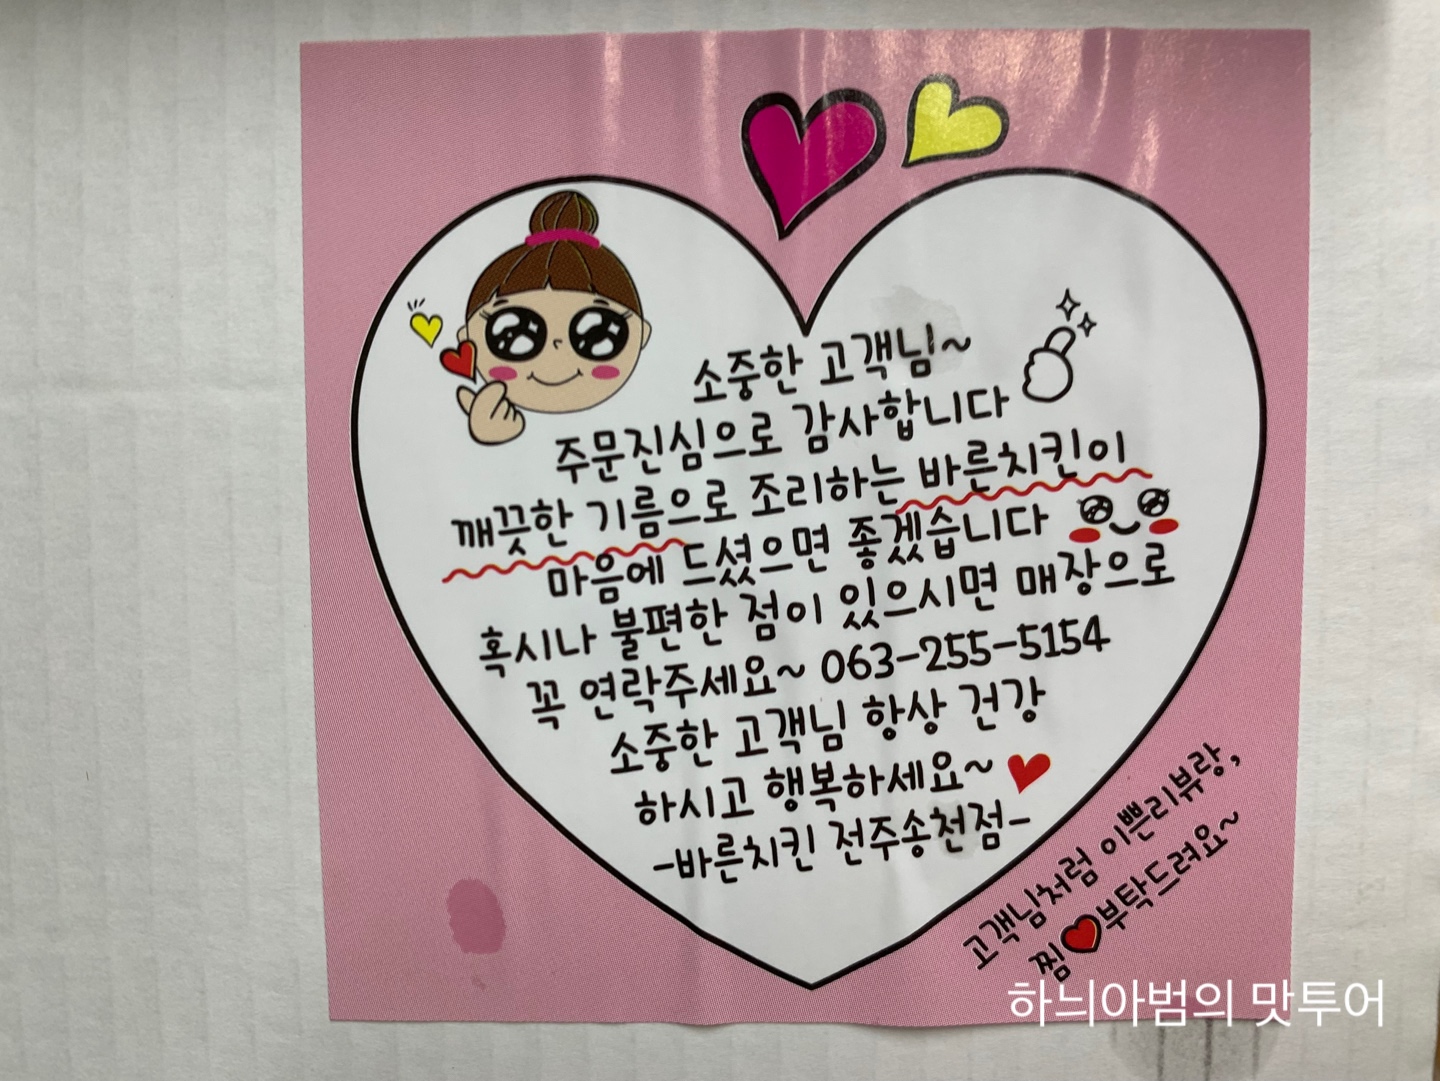 소중한 고객님~
주문진심으로 감사합니다
깨끗한 기름으로 조리하는 바른치킨이
마음에 드셨으면 좋겠습니다
혹시나 불편한 점이 있으시면 매장으로
꼭 연락주세요~ 063-255-5154
소중한 고객님 항상 건강
하시고 행복하세요~
-바른치킨 전주송천점-
고객님처럼 이쁜리뷰랑,
찜 부탁드려요~
하늬아범의 맛투어